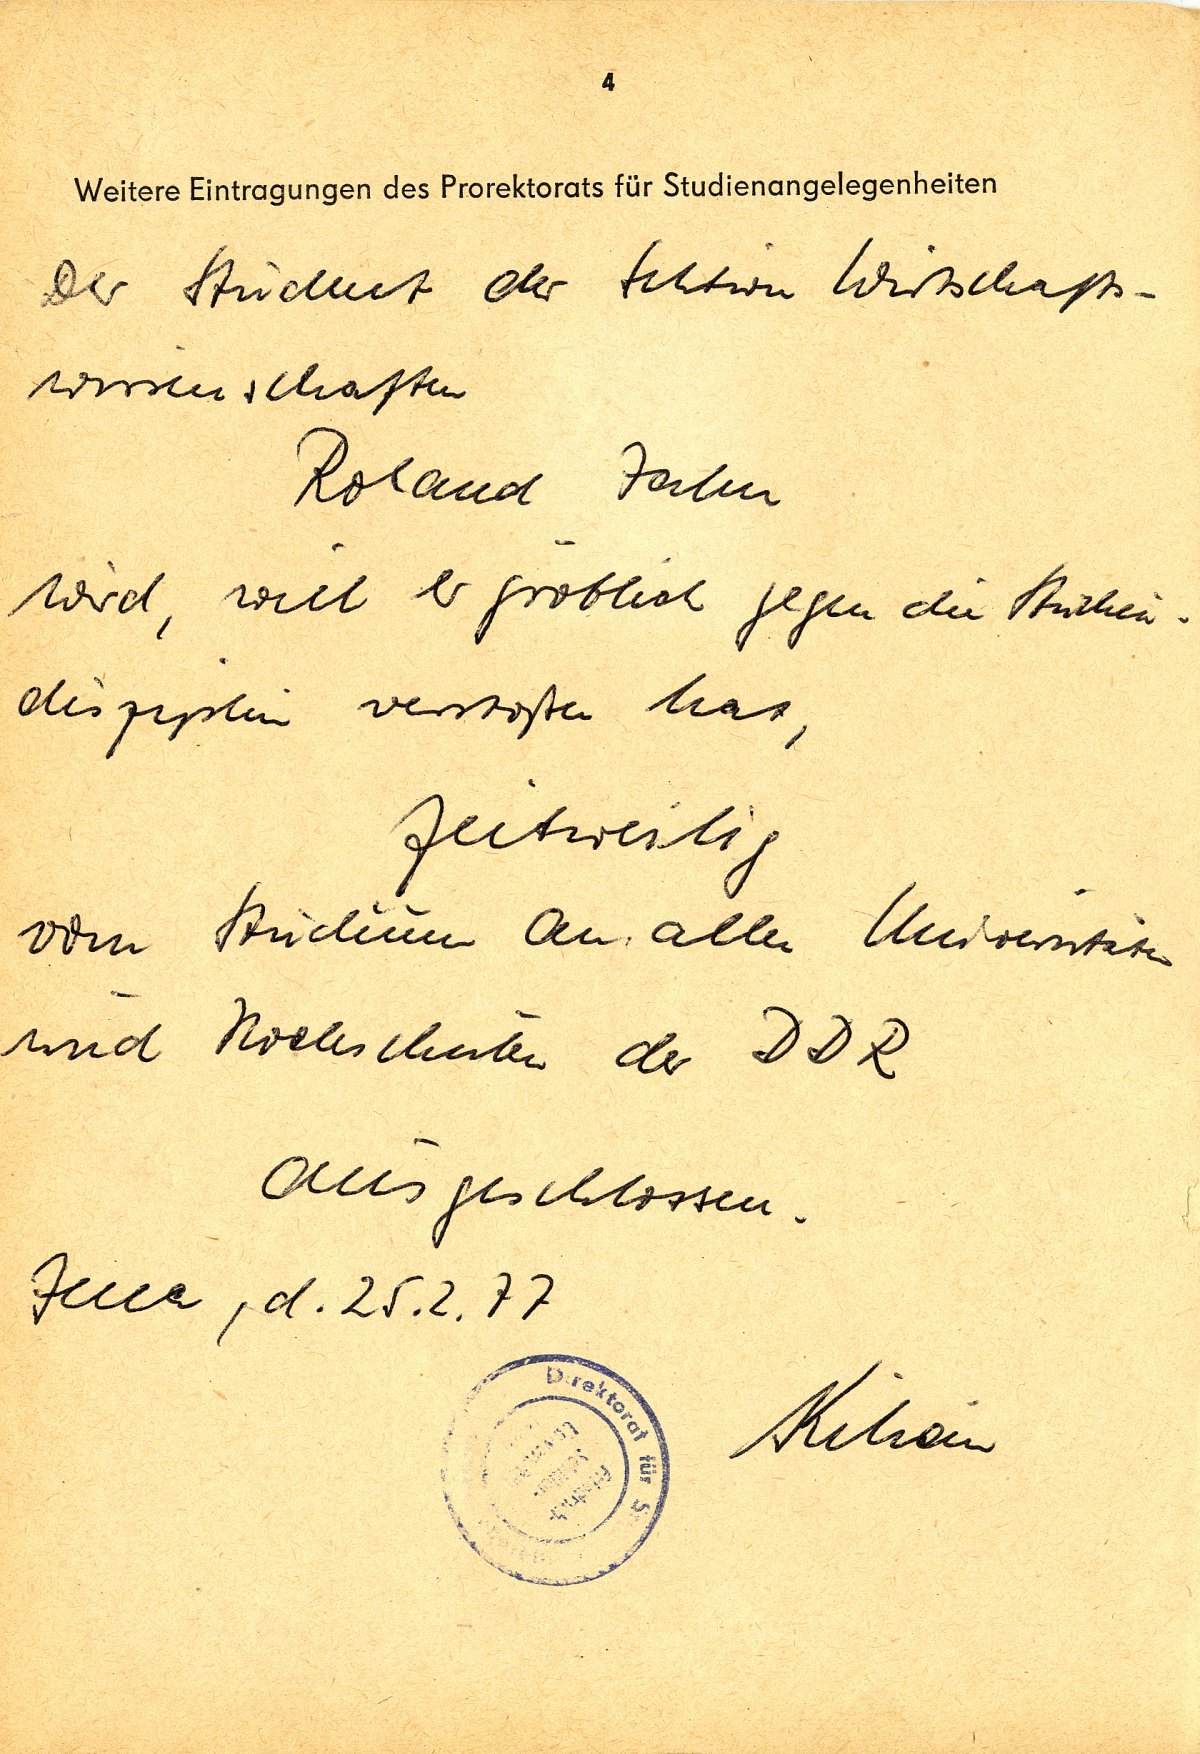 4
Weitere Eintragungen des Prorektorats für Studienangelegenheiten
Der Student der Sektion Wirtschafts-
wissenschaften
Roland Jahn
wird, weil er gröblich gegen die Studien-
disziplin verstoßen hat,
zeitweilig
vom Studium an allen Universitäten
und Hochschulen der DDR
ausgeschlossen.
Jena, d. 25.2.77
Direktorat für
Kilian